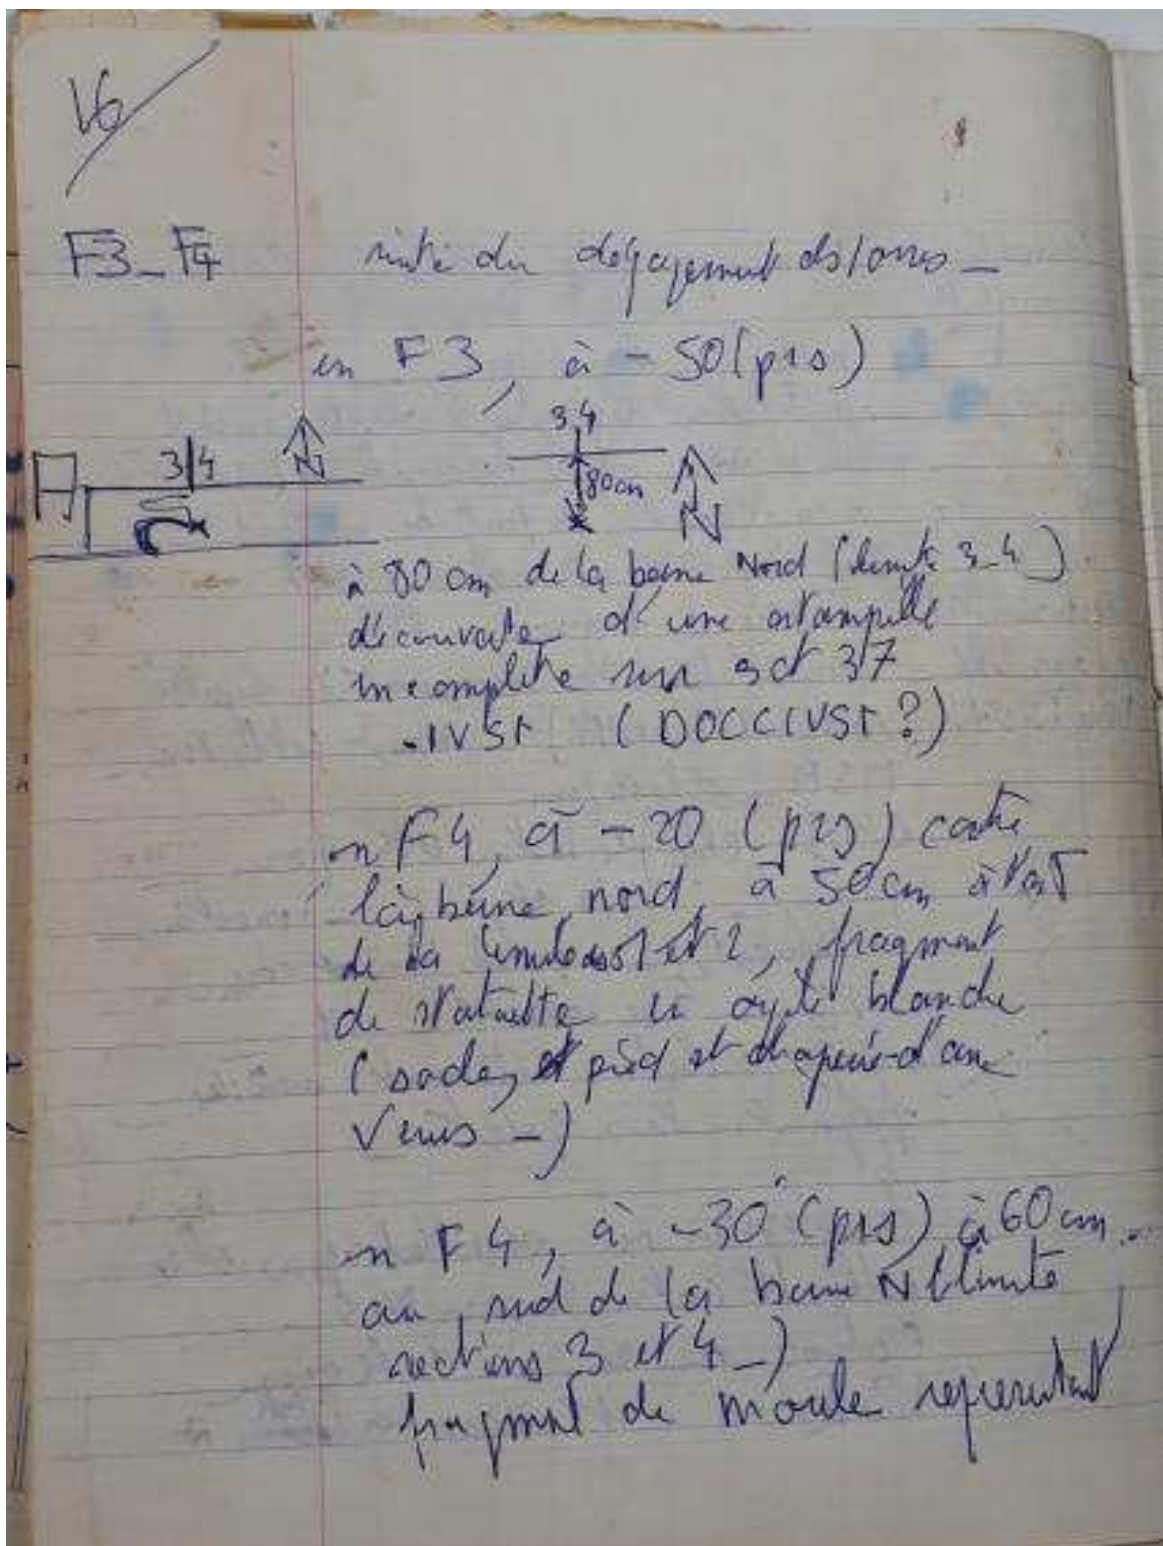 16
F3_F4 suite du dégagement ds fosses _
en F3, à - 50 (prs)
3|4 N
3 4
80 cm N
à 80 cm de la berne Nord (limite 3_4)
découverte d'une estampille
incomplète sur 37
.IVST (DOCCIVST ?)
en F4, à - 20 (prs) contre
la berne nord, à 50 cm à l'est
de la limite 1 et 2, fragment
de statuette en argile blanche
(socle, pied et draperie d'une
Venus -)
en F4, à -30 (prs) à 60 cm
au sud de la berne N (limite
sections 3 et 4 _)
fragment de moule représentant